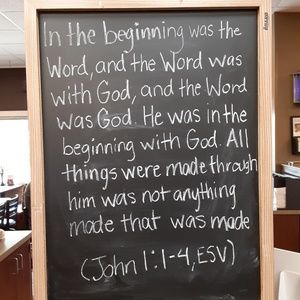 In the beginning was the
Word, and the Word was
with God, and the Word
was God. He was in the
beginning with God. All
things were made through
him was not anything
made that was made
(John 1:1-4, ESV)